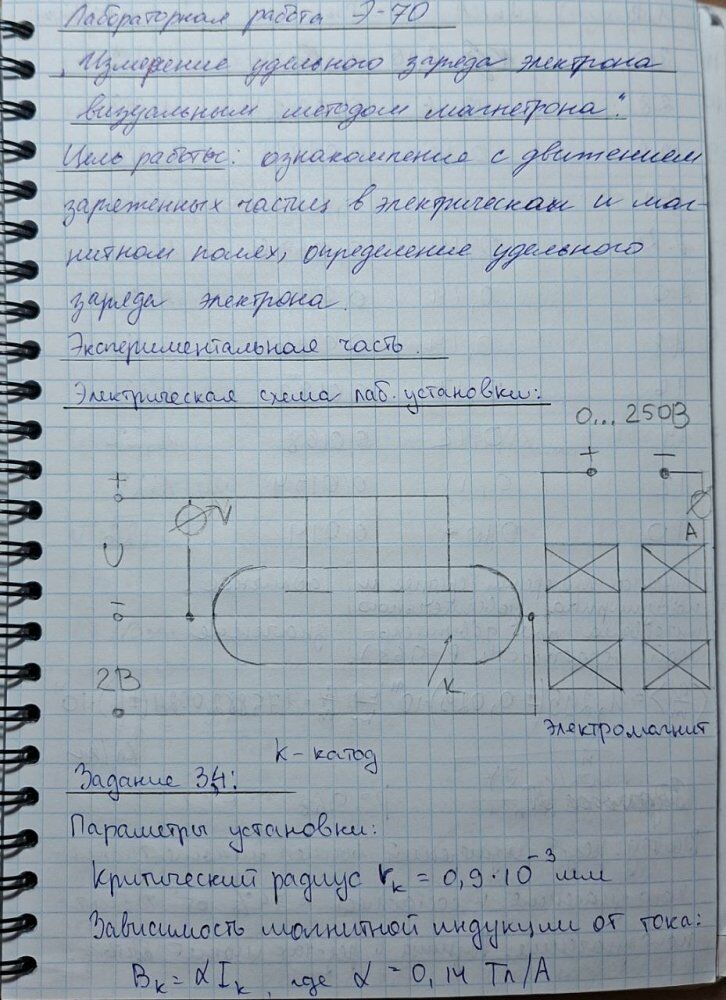 Лабораторная работа Э-70
"Измерение удельного заряда электрона
визуальным методом магнетрона".
Цель работы: ознакомление с движением
заряженных частиц в электрическом и маг-
нитном полях, определение удельного
заряда электрона.
Экспериментальная часть.
Электрическая схема лаб. установки:
0... 250В
+ −
+
V
A
U
−
K
2В
Электромагнит
K - катод
Задание 3,4:
Параметры установки:
Критический радиус rк = 0,9·10⁻³ мм
Зависимость магнитной индукции от тока:
Bк = αIк, где α = 0,14 Тл/А